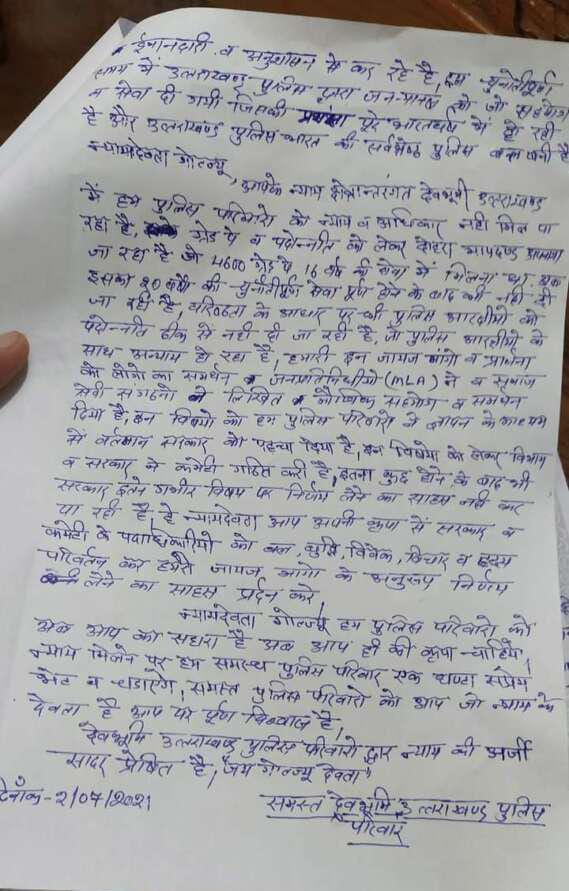 ईमानदारी व अनुशासन से कर रहे है, इस चुनौतीपूर्ण
समय में उत्तराखण्ड पुलिस द्वारा जन-मानस को जो सहयोग
व सेवा दी गयी जिसकी प्रशंसा पूरे भारतवर्ष में हो रही
है और उत्तराखण्ड पुलिस भारत की सर्वश्रेष्ठ पुलिस बनी है
न्यायदेवता गोल्ज्यू,
आपके न्याय क्षेत्रान्तरगत देवभूमी उत्तराखण्ड
में हम पुलिस परिवारो को न्याय व अधिकार नही मिल पा
रहा है, ग्रेड पे व पदोन्नति को लेकर दोहरा मापदण्ड अपनाया
जा रहा है जो 4600 ग्रेड पे 16 वर्ष की सेवा में मिलना था, अब
इसको 20 वर्षो की चुनौतीपूर्ण सेवा पूर्ण होने के बाद भी नही दी
जा रही है, वरिष्ठता के आधार पर भी पुलिस आरक्षीयो को
पदोन्नति ठीक से नही दी जा रही है, जो पुलिस आरक्षीयो के
साथ अन्याय हो रहा है, हमारी इन जायज मांगो व प्रार्थना
को लोगो का समर्थन जनप्रतिनिधीयो (MLA) ने व समाज
सेवी संगठनो ने लिखित व मौखिक सहयोग व समर्थन
दिया है, इन विषयो को हम पुलिस परिवारो ने ज्ञापन के माध्यम
से वर्तमान सरकार को पहुचा दिया है, इन विषयो को लेकर विभाग
व सरकार ने कमेटी गठित करी है, इतना कुछ होने के बाद भी
सरकार इतने गंभीर विषय पर निर्णय लेने का साहस नही कर
पा रही है, हे न्यायदेवता आप अपनी कृपा से सरकार व
कमेटी के पदाधिकारीयो को बल, बुद्धि, विवेक, विचार व हृदय
परिवर्तन कर हमारी जायज मांगो के अनुरूप निर्णय
लेने का साहस प्रदान करे,
न्यायदेवता गोल्ज्यू हम पुलिस परिवारो को
अब आप का सहारा है अब आप ही की कृपा चाहिये,
न्याय मिलने पर हम समस्थ पुलिस परिवार एक घण्टा सप्रेम
भेट व चडाएंगे, समस्त पुलिस परिवारो को आप जो न्याय के
देवता है आप पर पूर्ण विश्वास है,
देवभूमि उत्तराखण्ड पुलिस परिवारो द्वार न्याय की अर्जी
सादर प्रेषित है, "जय गोल्ज्यू देवता"
दिनाँक-2/07/2021
समस्त देवभूमि उत्तराखण्ड पुलिस
परिवार